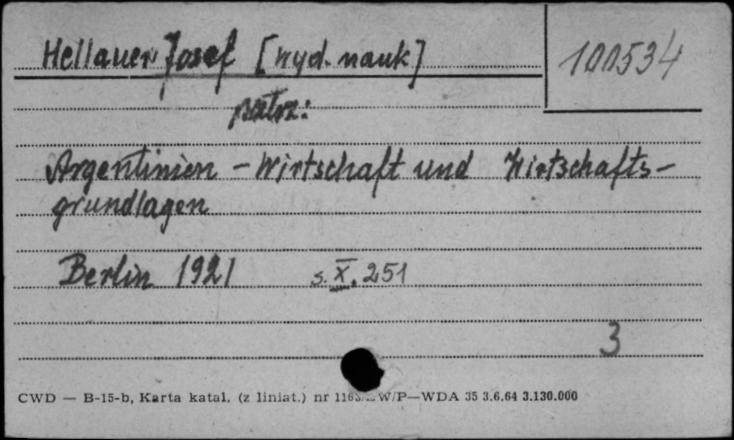 Hellauer Josef [wyd. nauk]
100534
patrz:
Argentinien - Wirtschaft und Wirtschafts-
grundlagen
Berlin 1921 s. X, 251
3
CWD — B-15-b, Karta katal. (z liniat.) nr W/P—WDA 35 3.6.64 3.130.000